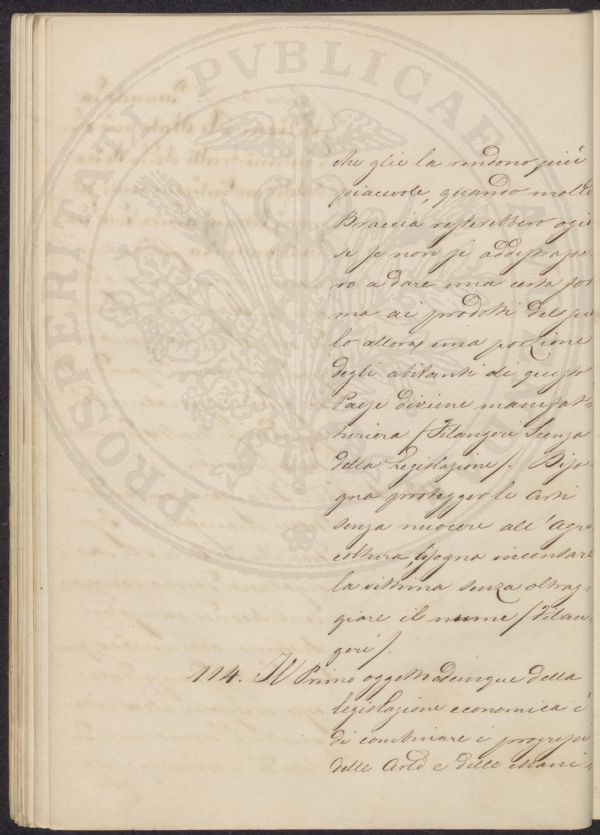 che glie la rendono più
piacevole, quando molte
Braccia resterebbero ozio
se se non si addestrasse
ro a dare una certa for
ma ai prodotti del suo
lo allora una porzione
degli abitanti di questo
Paese diviene manifat=
turiera (Filangeri Scienza
della Legislazione). Biso
gna protegger le arti
senza nuocere all'Agri
coltura, bisogna incensare
la vittima senza oltrag=
giare il nume (Filan
geri).
114. Il Primo oggetto adunque della
legislazione economica è
di combinare i progressi
delle Arti e delle Mani=
PROSPERITATI PVBLICAE